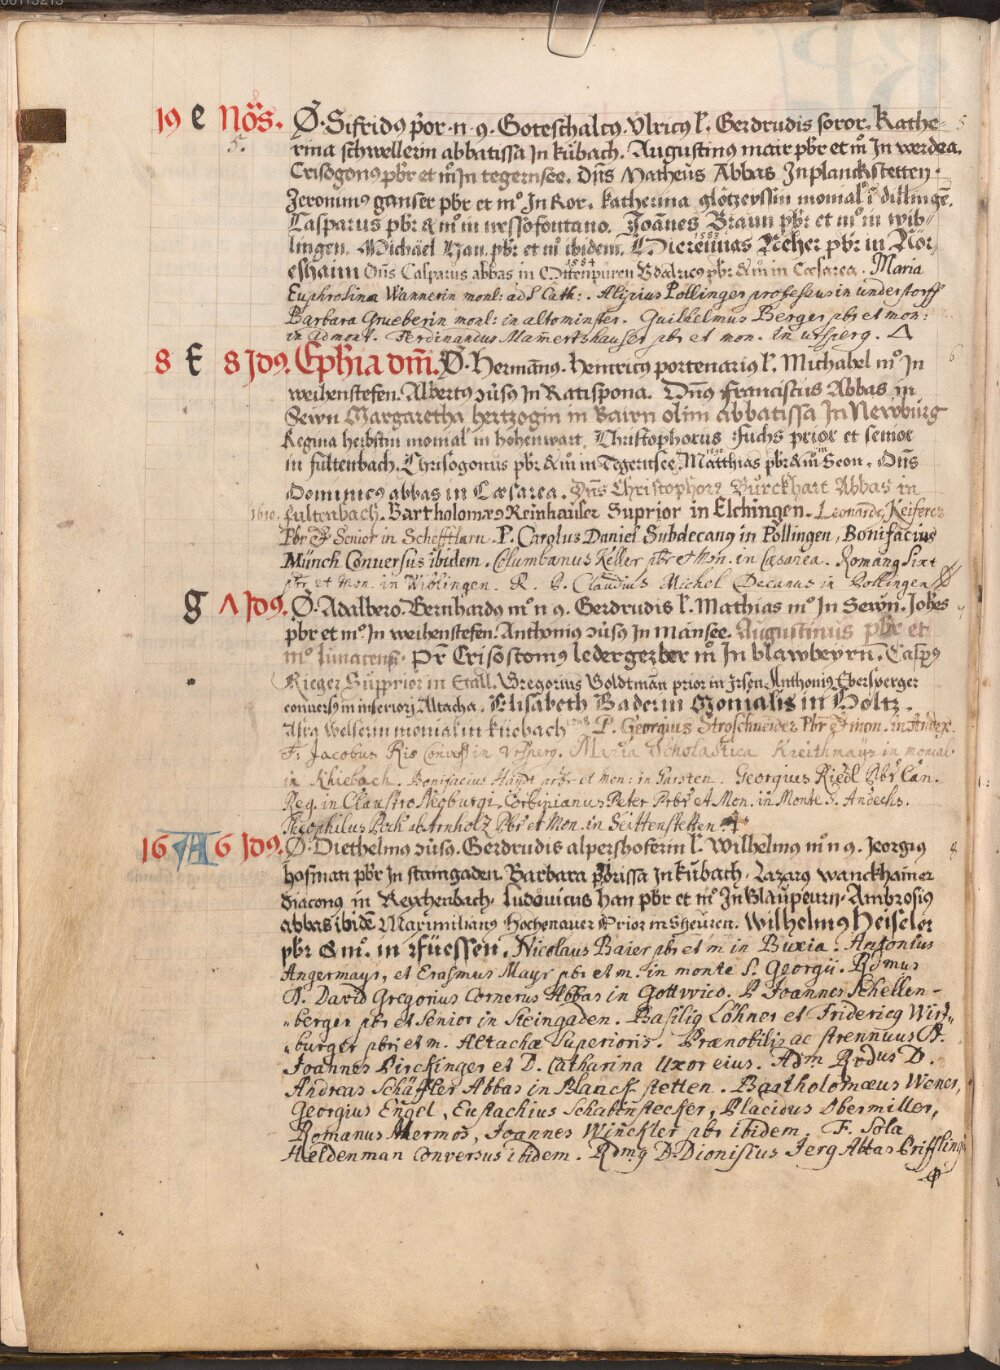 19 e Nōs. Ø. Sifridꝰ p̄or. n. ꝯ. Goteschalcꝰ. Vlricꝰ l̄. Gerdrudis soror. Kathe- 5
5. rina schwellerin abbatissa Jn kübach. Augustinꝰ mair pb̄r et mͦ Jn werdea.
Crisogonꝰ pb̄r et mͦ Jn tegernsee. Dn̄s Matheüs Abbas Jn planckstetten.
Jeronimꝰ ganser pb̄r et mͦ Jn Ror. katherina glötzerssin monial̄ ī dilingē.
Casparus pb̄r & mͦ in wessofontano. Joānes Braun pb̄r et mͦ in wib-
lingen. Michael Han pb̄r et mͦ ibidem. Hieremias Neher pb̄r in Nör
eshaim Dn̄s Casparus abbas in Ottenpüren Vdalricꝰ pb̄r & m̄ in Cæsarea. Maria
Euphrosina Wannerin monl: ad S Cath: . Alipius Pollinger professus in understorff
Barbara Grueberin monl: in altominster. Guilhelmus Berger pbr et mon:
in admont. Ferdinandus Mamertshauser pbr et mon. in ursperg. Δ
8 f 8 Jdꝰ. Ephīa dm̄. Ø. Hermān̄ꝰ. Heinricꝰ portenariꝰ l̄. Michahel mͦ Jn 6
weihenstefen. Albertꝰ ɔūsꝰ Jn Ratispona. Dn̄ꝰ franciscus Abbas in
Sewn Margaretha hertzogin in Bairn olim abbatissa Jn Newburg
Regina herbstin monial̄ in hohenwart. Christophorus Fuchs prior et senior
in fultenbach. Chrisogonus pb̄r & m̄ in Tegernsee. Matthias pb̄r & m̄ Seon. Dn̄s
Dominicꝰ abbas in Cæsarea. Dn̄s Christophorꝰ Burckhart Abbas in
1610. fultenbach. Bartholomæꝰ Reinhauser Suprior in Elchingen. Leonardꝰ Keiferer
Pbr & Senior in Schefftlarn. P. Carolus Daniel Subdecanꝰ in Pollingen, Bonifacius
Münch Conversus ibidem. Columbanus Keller pbr et Mon. in Cæsarea. Romanꝰ Sixt
pbr et Mon. in Wiblingen. R. D. Claudius Michel Decanus in Pollingen
g Λ Jdꝰ. Ø. Adalbero. Bernhardꝰ mͦ n ꝯ. Gerdrudis l̄. Mathias mͦ Jn Sewn. Joh̄es
pb̄r et mͦ Jn weihenstefen. Anthoniꝰ ɔūsꝰ Jn Mansee. Augustinus pbr et
mͦ lunacens. Pr̄ Crisostomꝰ ledergerber mͦ Jn blawbeyrn̄. Caspꝰ
Rieger Supprior in Etall. Gregorius Goldtman̄ prior in Jrsen Anthoniꝰ Ebersperger
conversꝰ in inferiori Altacha. Elisabeth Baderin Monialis in Holtz.
Afra Wellerin monial in kuebach P. Georgius Stroschneider Pbr & mon. in Andex.
F. Jacobus Ris Convers in Vrsperg. Maria Scholastica Kreithmayr in monial
in Khiebach. Bonifacius Haydt pbr et mon: in Garsten. Georgius Riedl Pbr Can.
Reg. in Claustro Negburgi. Corbinianus Peter Prbr et Mon. in Monte S. Andechs.
Theophilus Pock ab Arnholz Pbr et Mon. in Seittenstetten.
16 A 6 Jdꝰ. Ø. Diethelmꝰ ɔūsꝰ. Gerdrudis alpershoferin l̄. Wilhelmꝰ mͦ n ꝯ. Jeorgiꝰ 8
hofman pb̄r Jn staingaden. Barbara p̄orissa Jn kübach. Lazarꝰ wanckhamer
diaconꝰ in Reychenbach. Ludouicus han pbr et mͦ Jn Blaupeurn. Ambrosiꝰ
abbas ibidē Maximilianꝰ Hochenauer Prior in Sheuren. Wilhelmꝰ Heiseler
pb̄r & mͦ. in Füessen. Nicolaus Baier pbr et m in Buxia. Antonius
Angermayr, et Erasmus Mayr pbr et m. in monte S. Georgii. Rdmus
D. David Gregorius Cornerus Abbas in Gottwico. P Joannes Schellen-
berger pbr et Senior in Steingaden. Basiliꝰ Löhner et Fridericꝰ Wirt-
burger pbri et m. Altachæ Superioris. Prænobilis ac strennuus D.
Joannes Pirckinger et D. Catharina Uxor eius. Adm Rdus D.
Andreas Schäffler Abbas in Planckstetten. Bartholomæus Wener,
Georgius Engel, Eustachius Schabenstecker, Placidus Obermiller,
Romanus Mermos, Joannes Winckler pbr ibidem. F. Sola
Heldenman Conversus ibidem. Rdmꝰ D. Dionisius Jerg Abbas Priffling